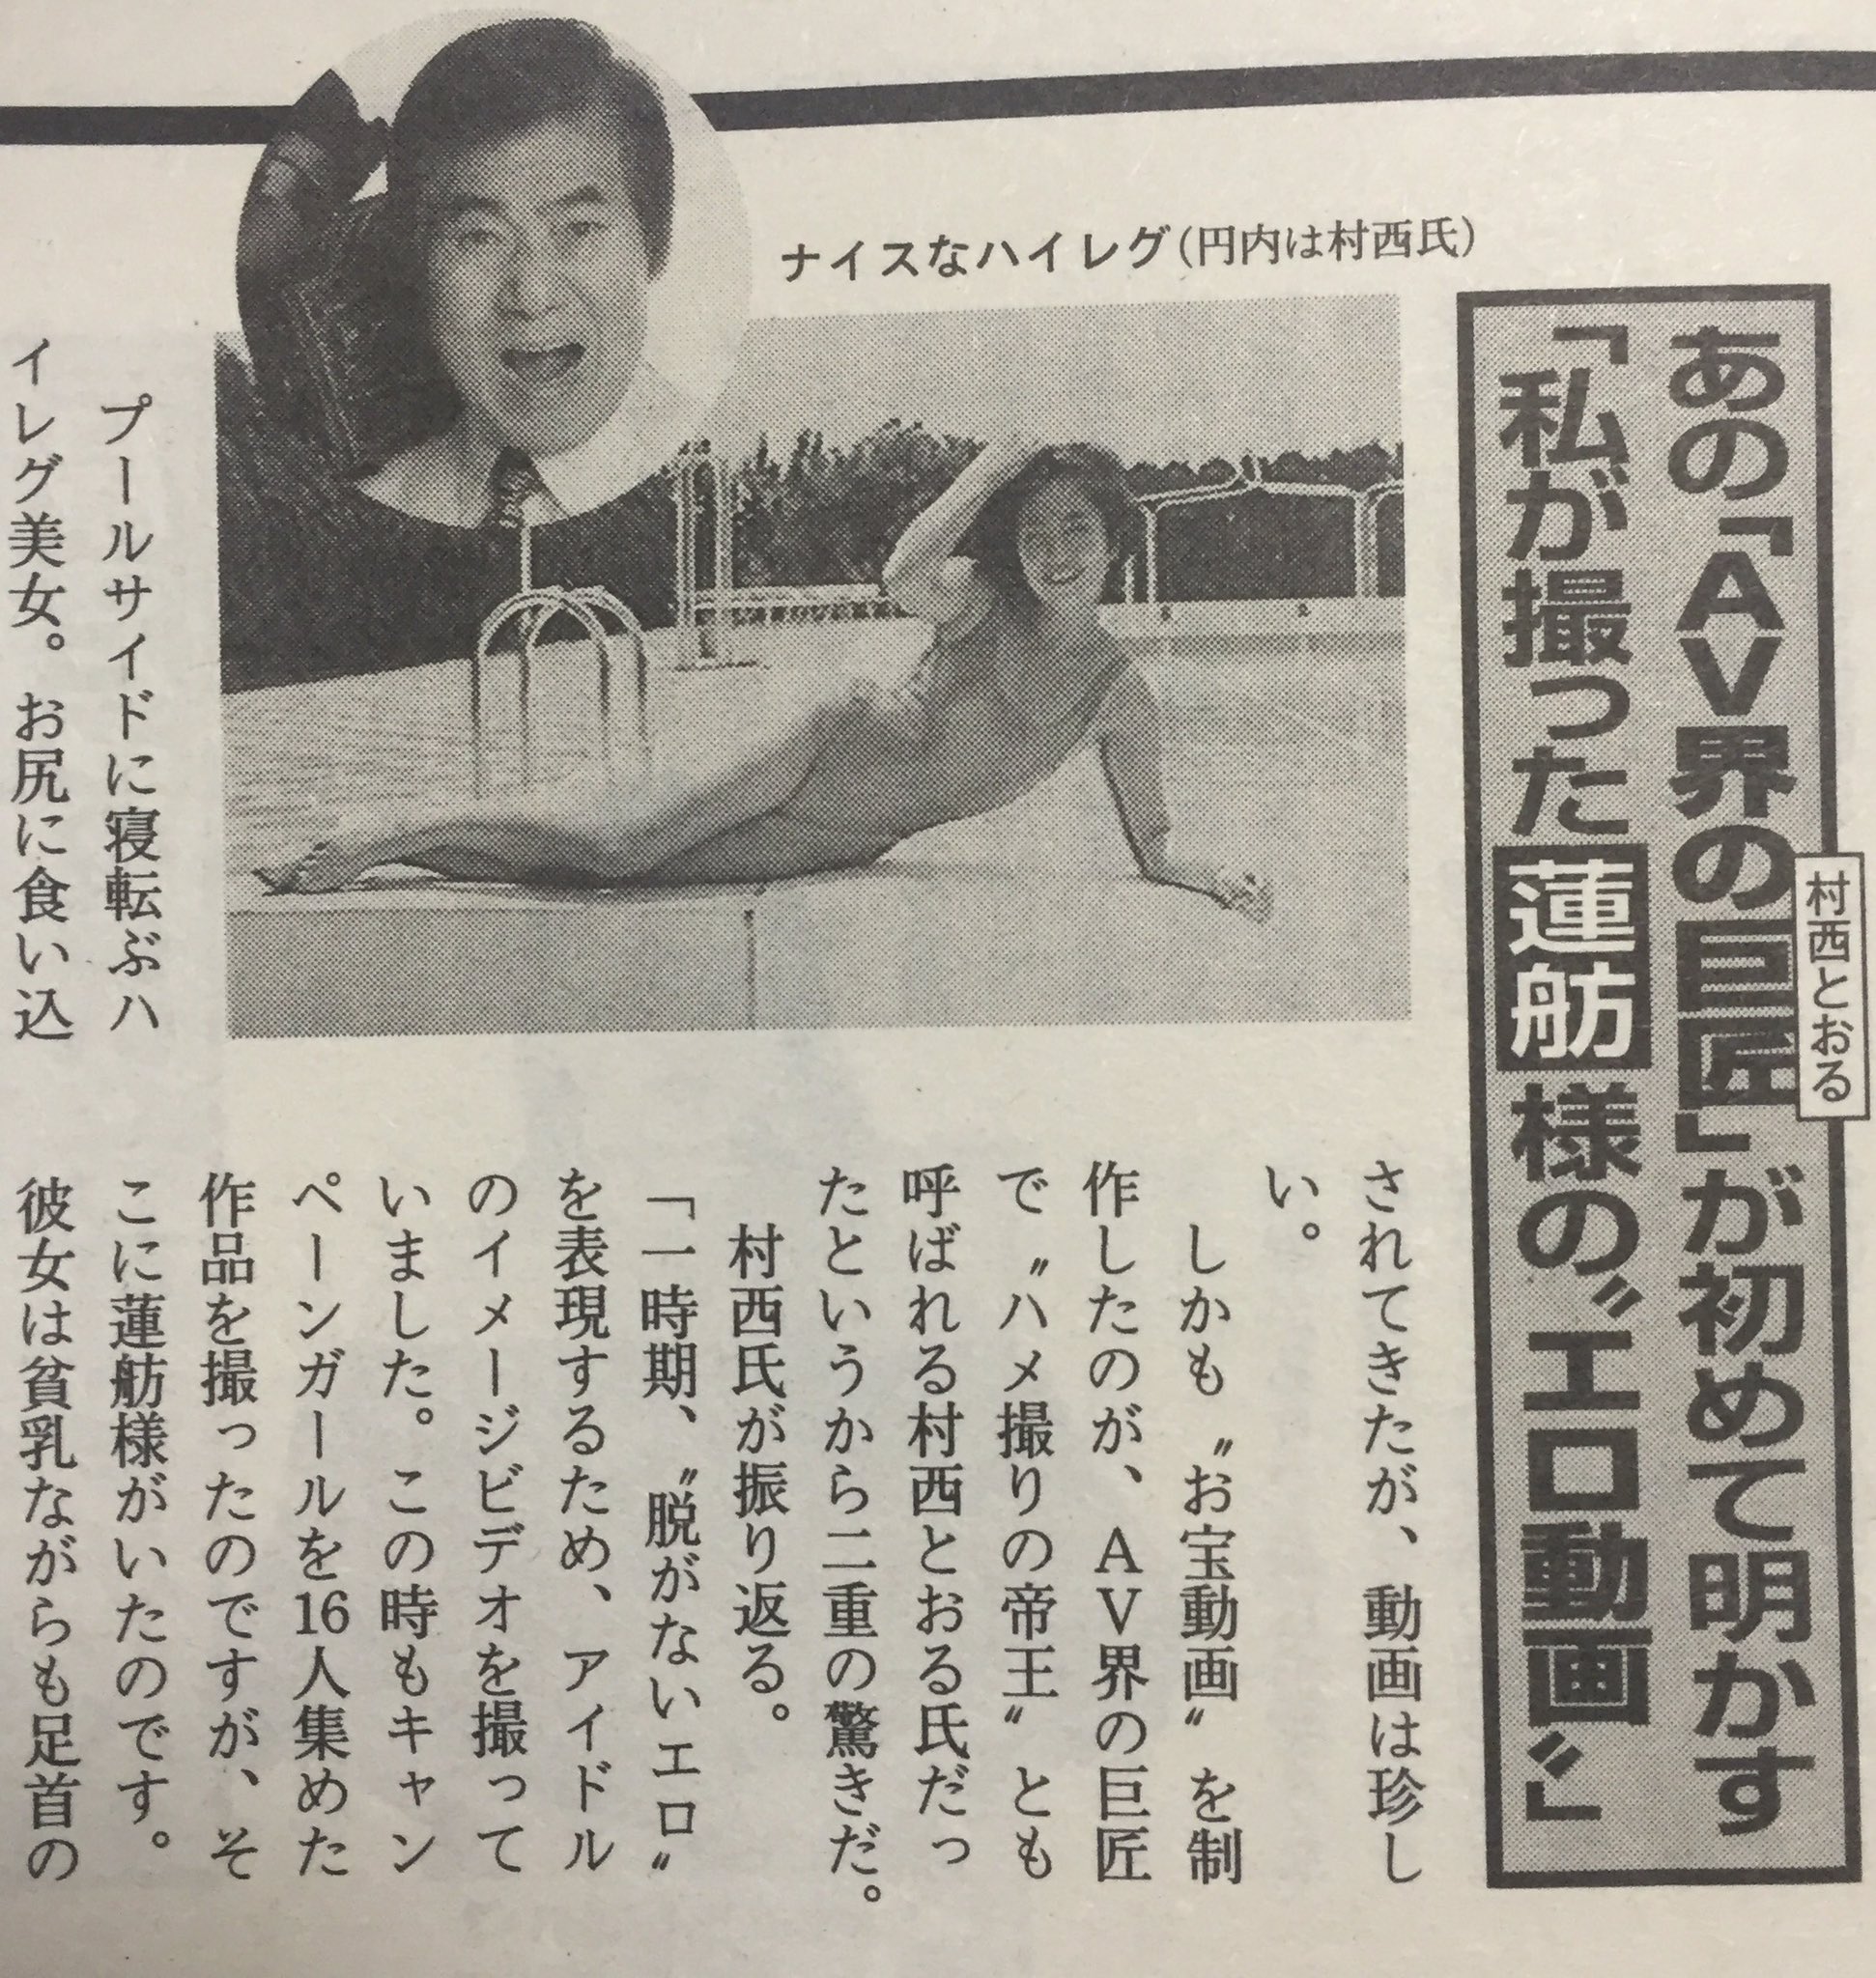 村西とおる
あの「AV界の巨匠」が初めて明かす
「私が撮った蓮舫様の〝エロ動画〟」
ナイスなハイレグ(円内は村西氏)
プールサイドに寝転ぶハ
イレグ美女。お尻に食い込
されてきたが、動画は珍し
い。
しかも〝お宝動画〟を制
作したのが、AV界の巨匠
で〝ハメ撮りの帝王〟とも
呼ばれる村西とおる氏だっ
たというから二重の驚きだ。
村西氏が振り返る。
「一時期、〝脱がないエロ〟
を表現するため、アイドル
のイメージビデオを撮って
いました。この時もキャン
ペーンガールを16人集めた
作品を撮ったのですが、そ
こに蓮舫様がいたのです。
彼女は貧乳ながらも足首の